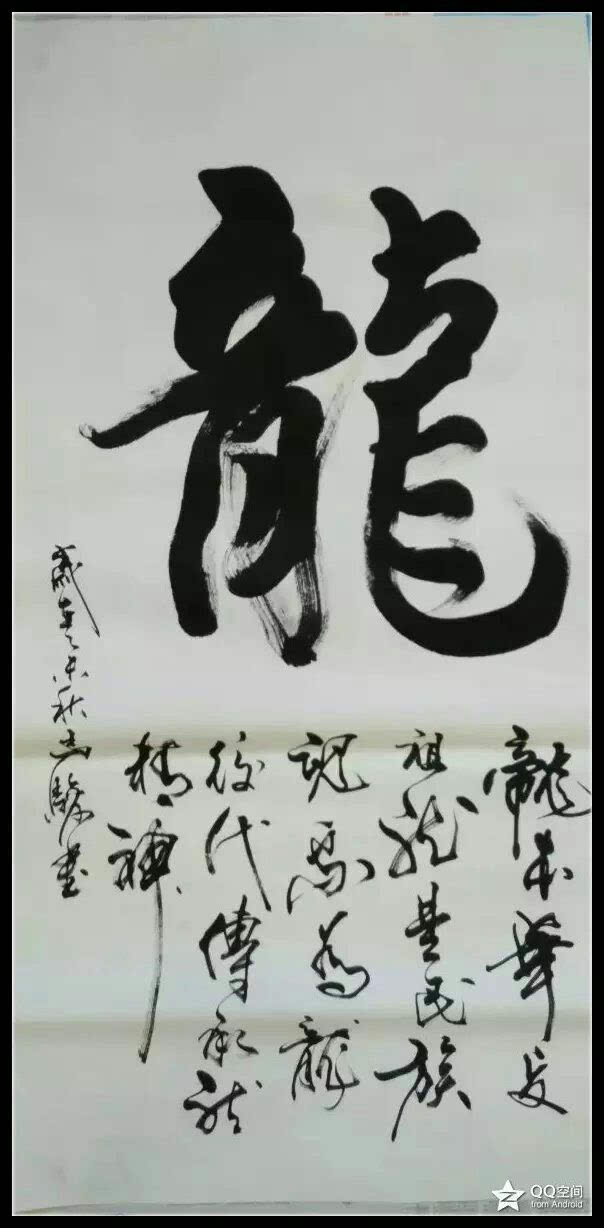 龍
龍本華夏
祖龙是民族
魂我為龍
後代傳承龙
精神
歲在乙未秋志書
QQ空间
from Android